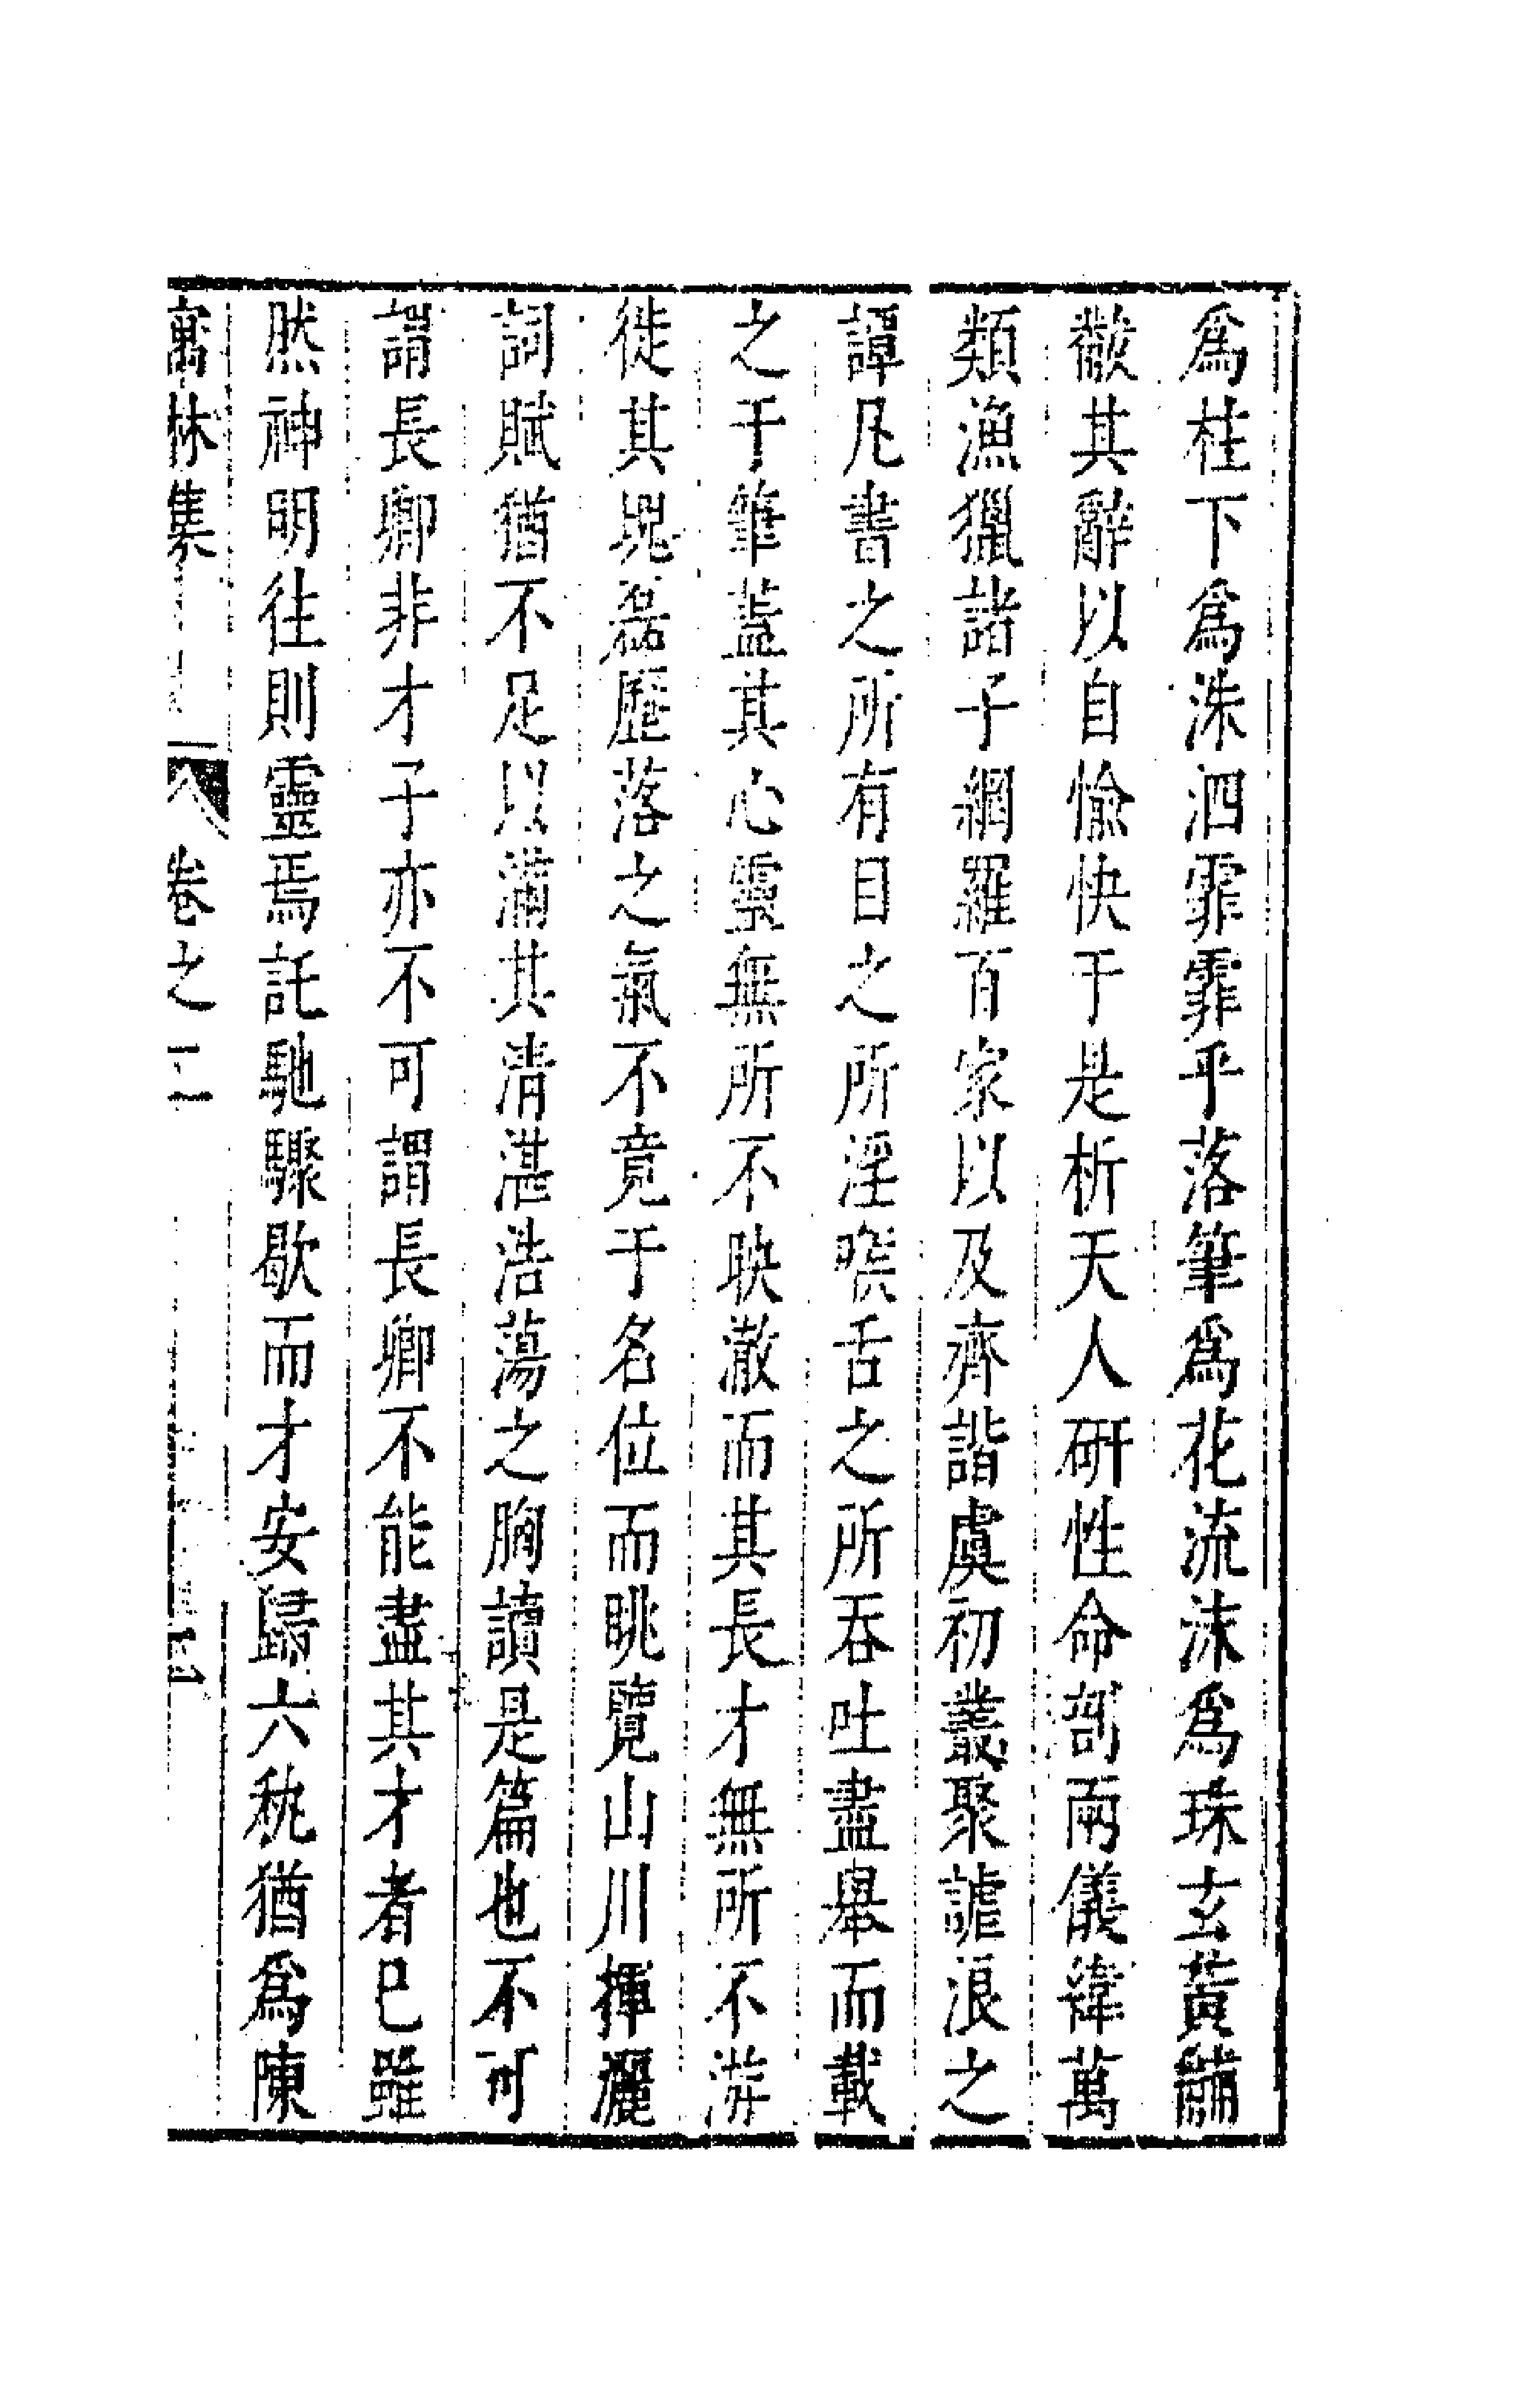 爲柱下爲洙泗霏霏乎落筆爲花流沫爲珠玄黃黼
黻其辭以自愉快于是析天人研性命剖兩儀緯萬
類漁獵諸子網羅百家以及齊諧虞初叢聚謔浪之
譚凡書之所有目之所淫喉舌之所吞吐盡舉而載
之于筆葢其心靈無所不映澈而其長才無所不游
徙其塊磊歷落之氣不竟于名位而眺覽山川揮灑
詞賦猶不足以滿其清湛浩蕩之胸讀是篇也不可
謂長卿非才子亦不可謂長卿不能盡其才者巳雖
然神明徃則靈焉託馳驟歇而才安歸六秇猶爲陳
寓林集 卷之二